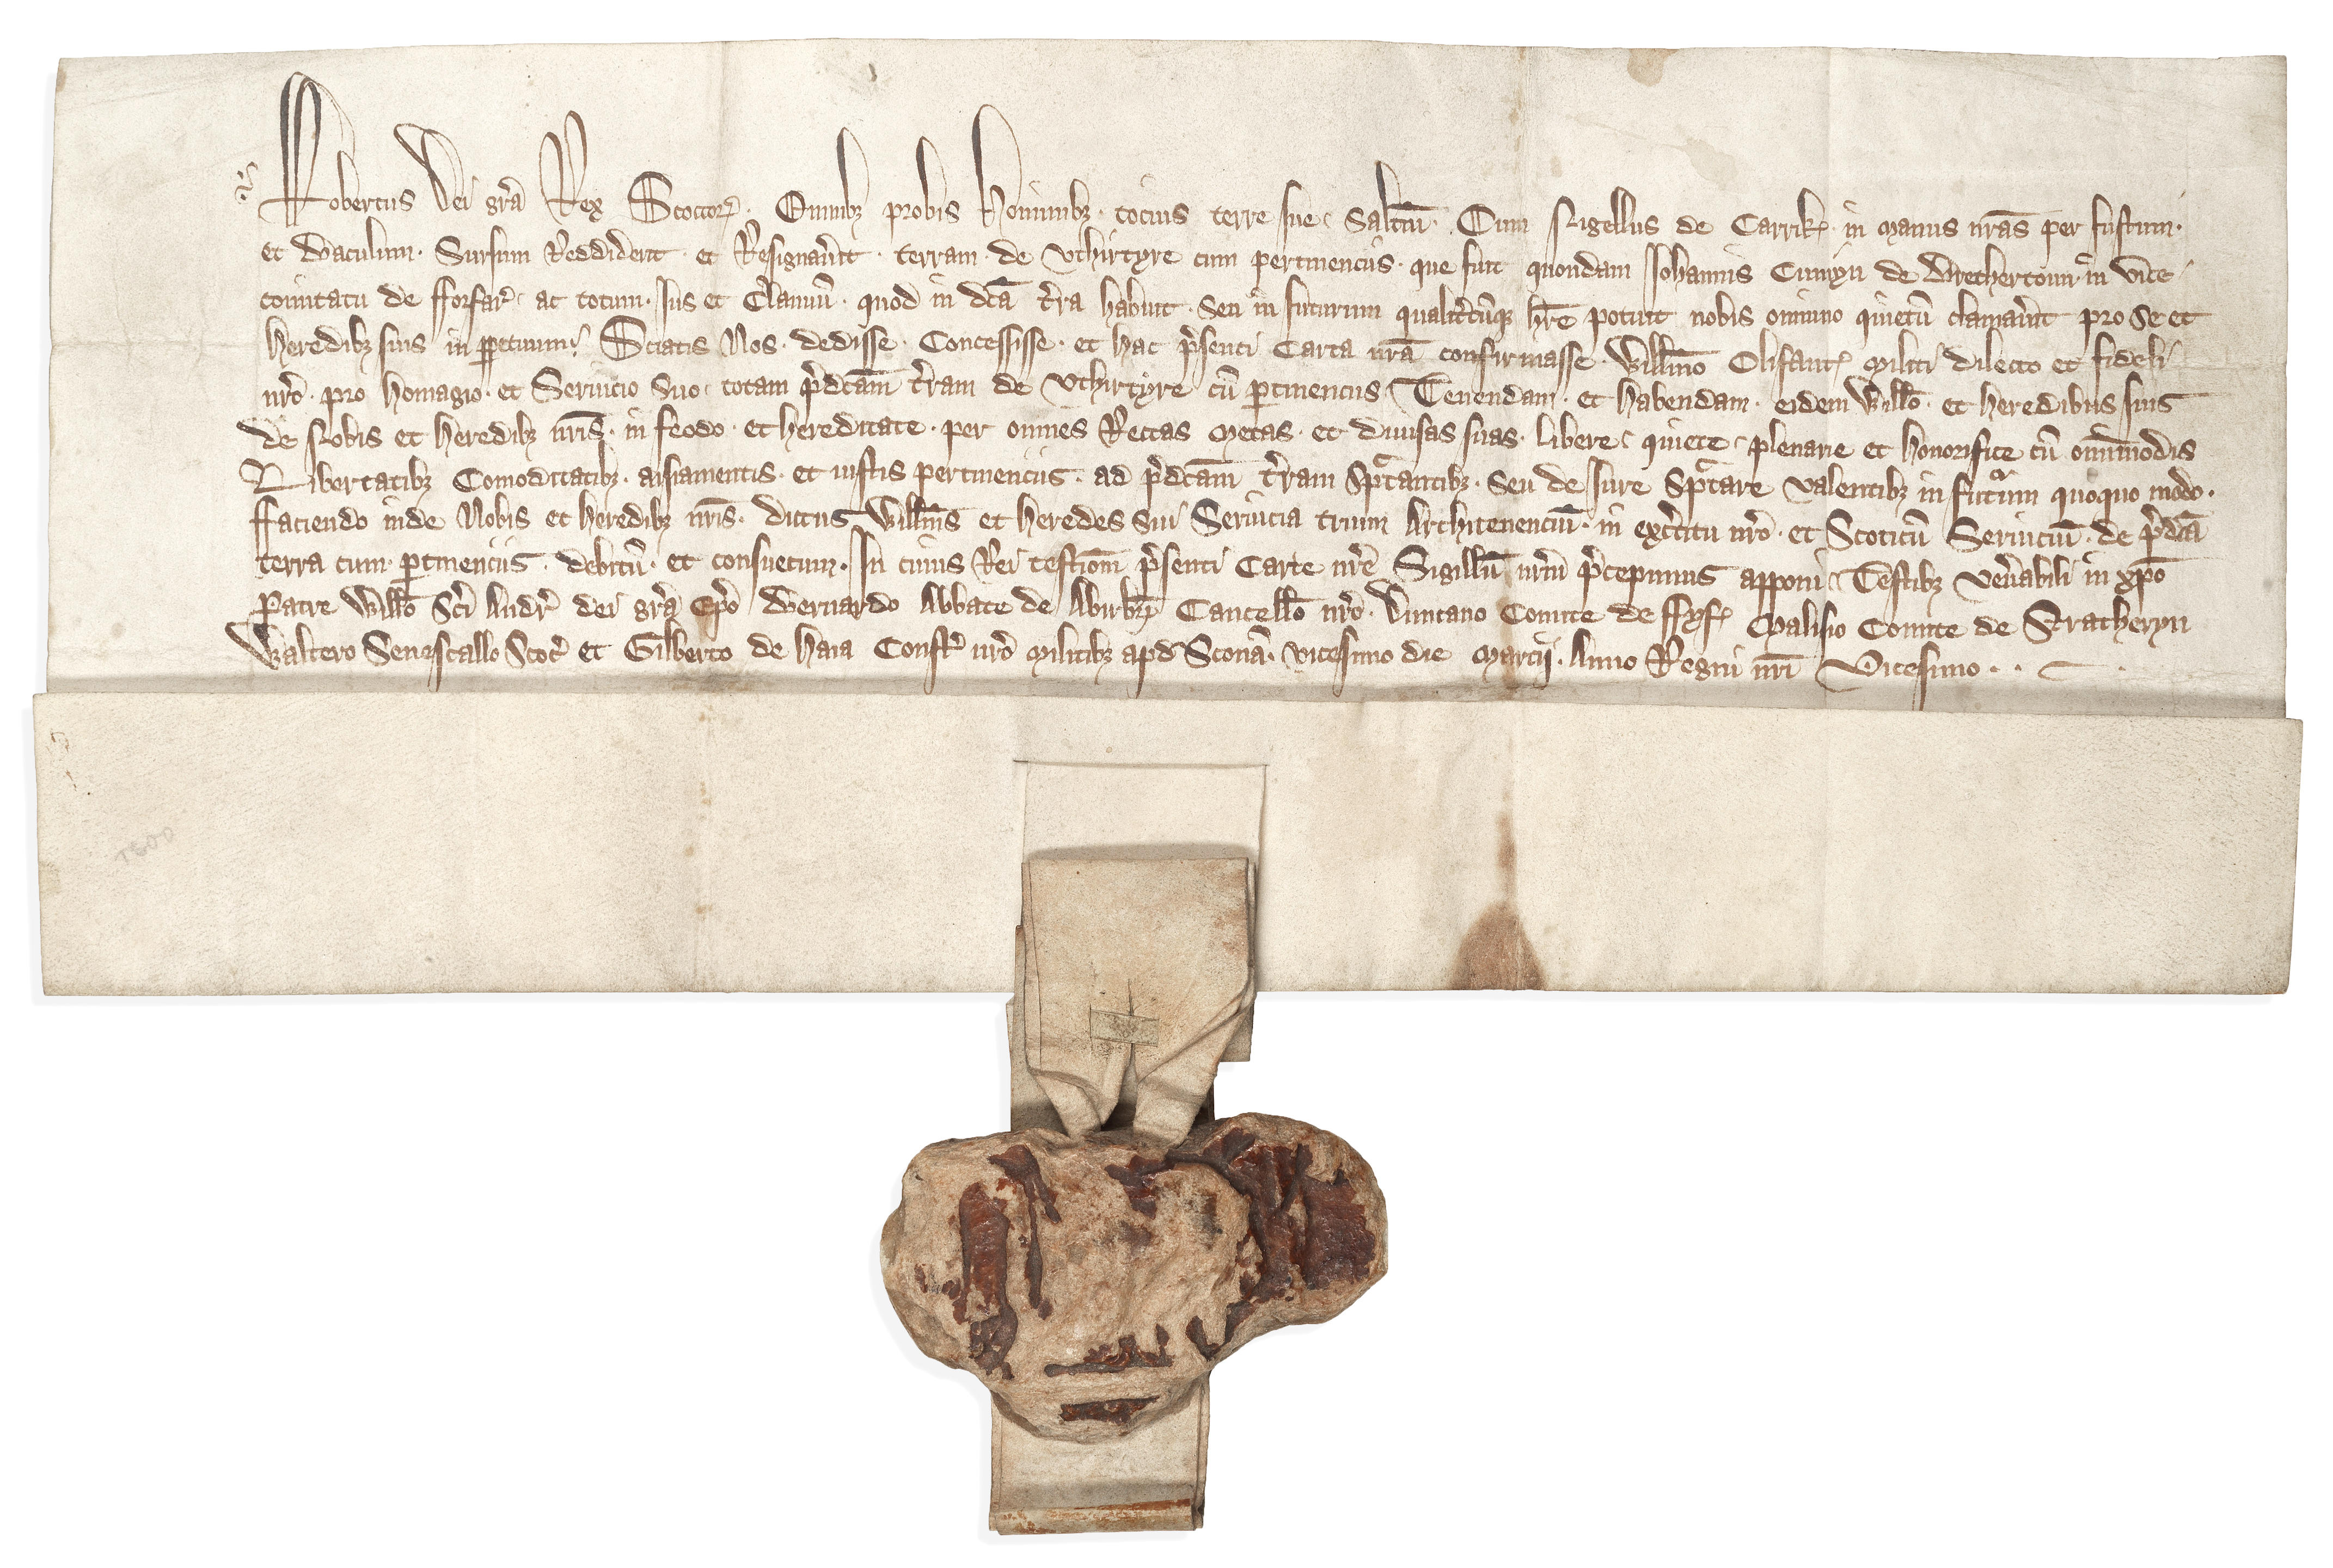 Robertus Dei gr̄a Rex Scottoꝝ. Omnibꝫ probis Hominibꝫ. tocius terre sue. Saltm̄. Cum Nigellus de Carrik in Manus nr̄as per fustum.
et Baculum. Sursum Reddiderit. et Resignau̓it. terram. de Vthirtyre cum pertinenciis. que fuit quondam Johannis Cumyn de Brethertoun. in vice
comitatu de fforfar̓. ac totum. Ius et Clamiū. quod in dc̄a tr̓ra habuit. Seu in futurum qualit̓cūqꝫ hr̄e potuit nobis omnino quietū clamau̓it pro Se et
Heredibꝫ suis in ꝑpetuum. Sciatis Nos. dedisse. Concessisse. et hac p̓senti Carta nr̄a confirmasse. Willm̄o Olifant Militi Dilecto et fideli
nr̄o. pro homagio. et Seruicio Suo. totam p̓dc̄am tr̓ram de Vthirtyre cū ꝑtinenciis. Tenendam. et habendam. eidem Willō. et heredibus suis
de Nobis et heredibꝫ nr̄is. in feodo. et hereditate. per omnes Rectas Metas. et diuisas suas. libere. quiete. plenarie et honorifice cū om̄imodis
Libertatibꝫ Comoditatibꝫ. aisiamentis. et iustis pertinenciis. ad p̓dc̄am tr̓ram Spc̄tantibꝫ. Seu de Iure Spc̄tare valentibꝫ in futur̄um quoquo modo.
ffaciendo inde Nobis et heredibꝫ nr̄is. dictus Willm̄s et heredes Sui Seruicia trium Architenenciū. in exc̓itu nr̄o. et Scoticū Seruiciū. de p̓dc̄a
terra cum ꝑtinenciis. debitū. et consuetum. In cuius Rei testiom̄ p̓senti Carte nr̄e Sigillū nr̄m p̓cepimus apponi. Testibꝫ Ven̓abili in xp̄o
Patre Willō Sc̄i Andr̓ dei gr̄a Ep̄o Bernardo Abbate de Abirbr̓ Cancellō nr̄o. Duncano Comite de ffyf Malisio Comite de Stratheryn
Waltero Senescallo Scoc̓ et Gilberto de Haia Const̓ nr̄o Militibꝫ apd Sconā. vicesimo die Marcij. Anno Regni nr̄i Vicesimo..